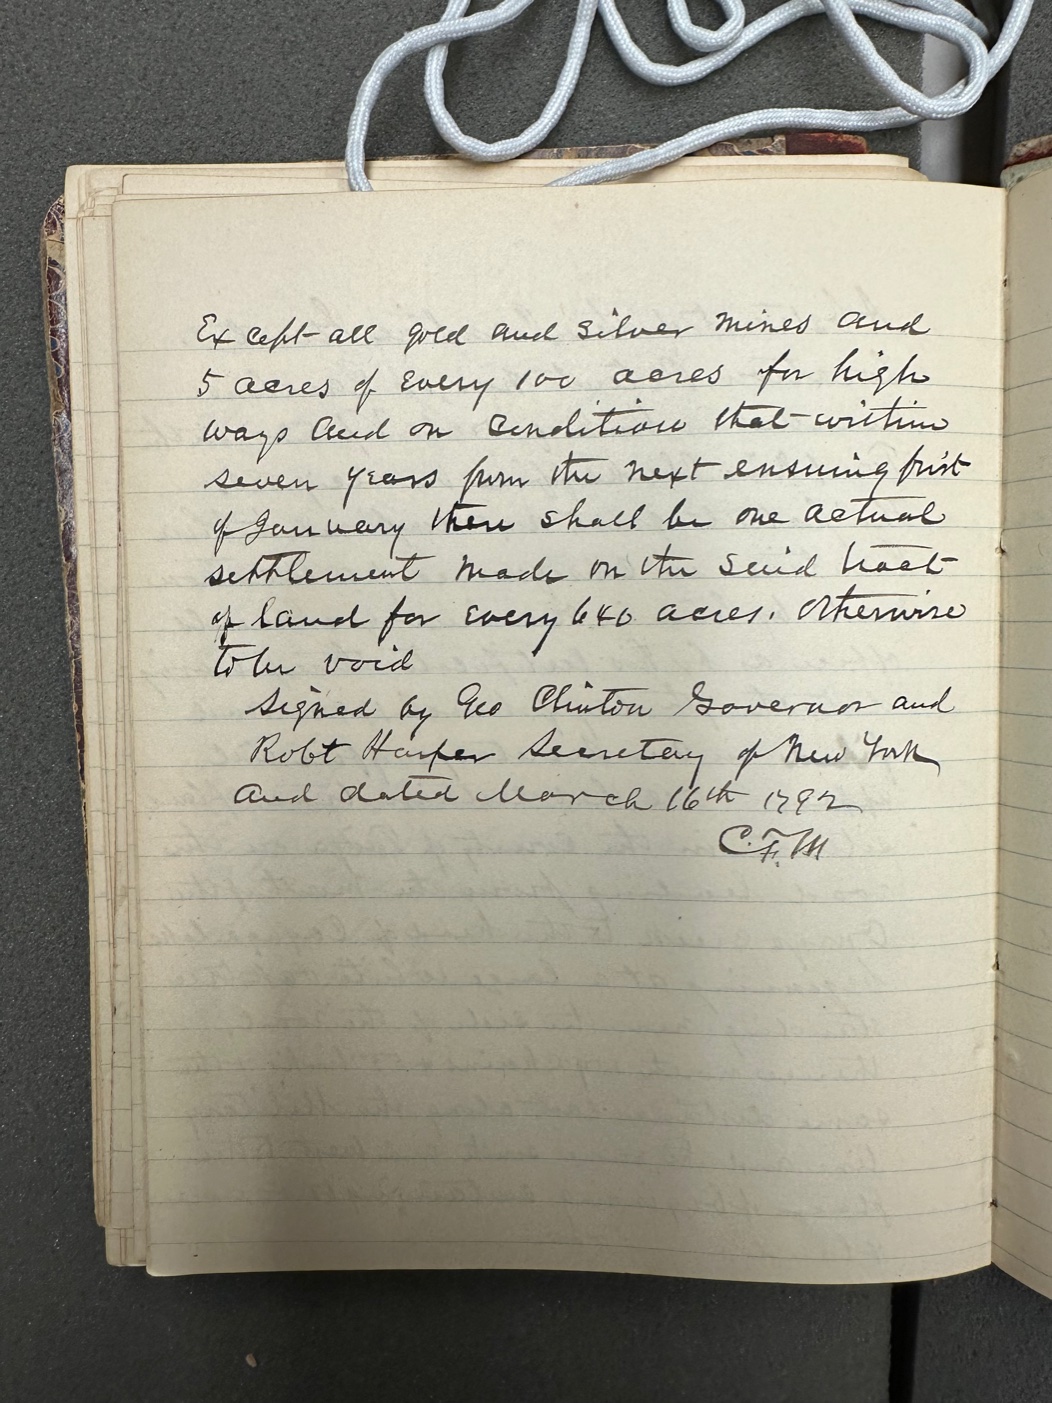 Except all gold and silver mines and
5 acres of every 100 acres for high
ways and on condition that within
seven years from the next ensuing first
of January there shall be one actual
setthlement made on the said tract
of land for every 640 acres. Otherwise
to be void
Signed by Geo Clinton Governor and
Robt Harper Secretay of New York
and dated March 16th 1792
C. F. M